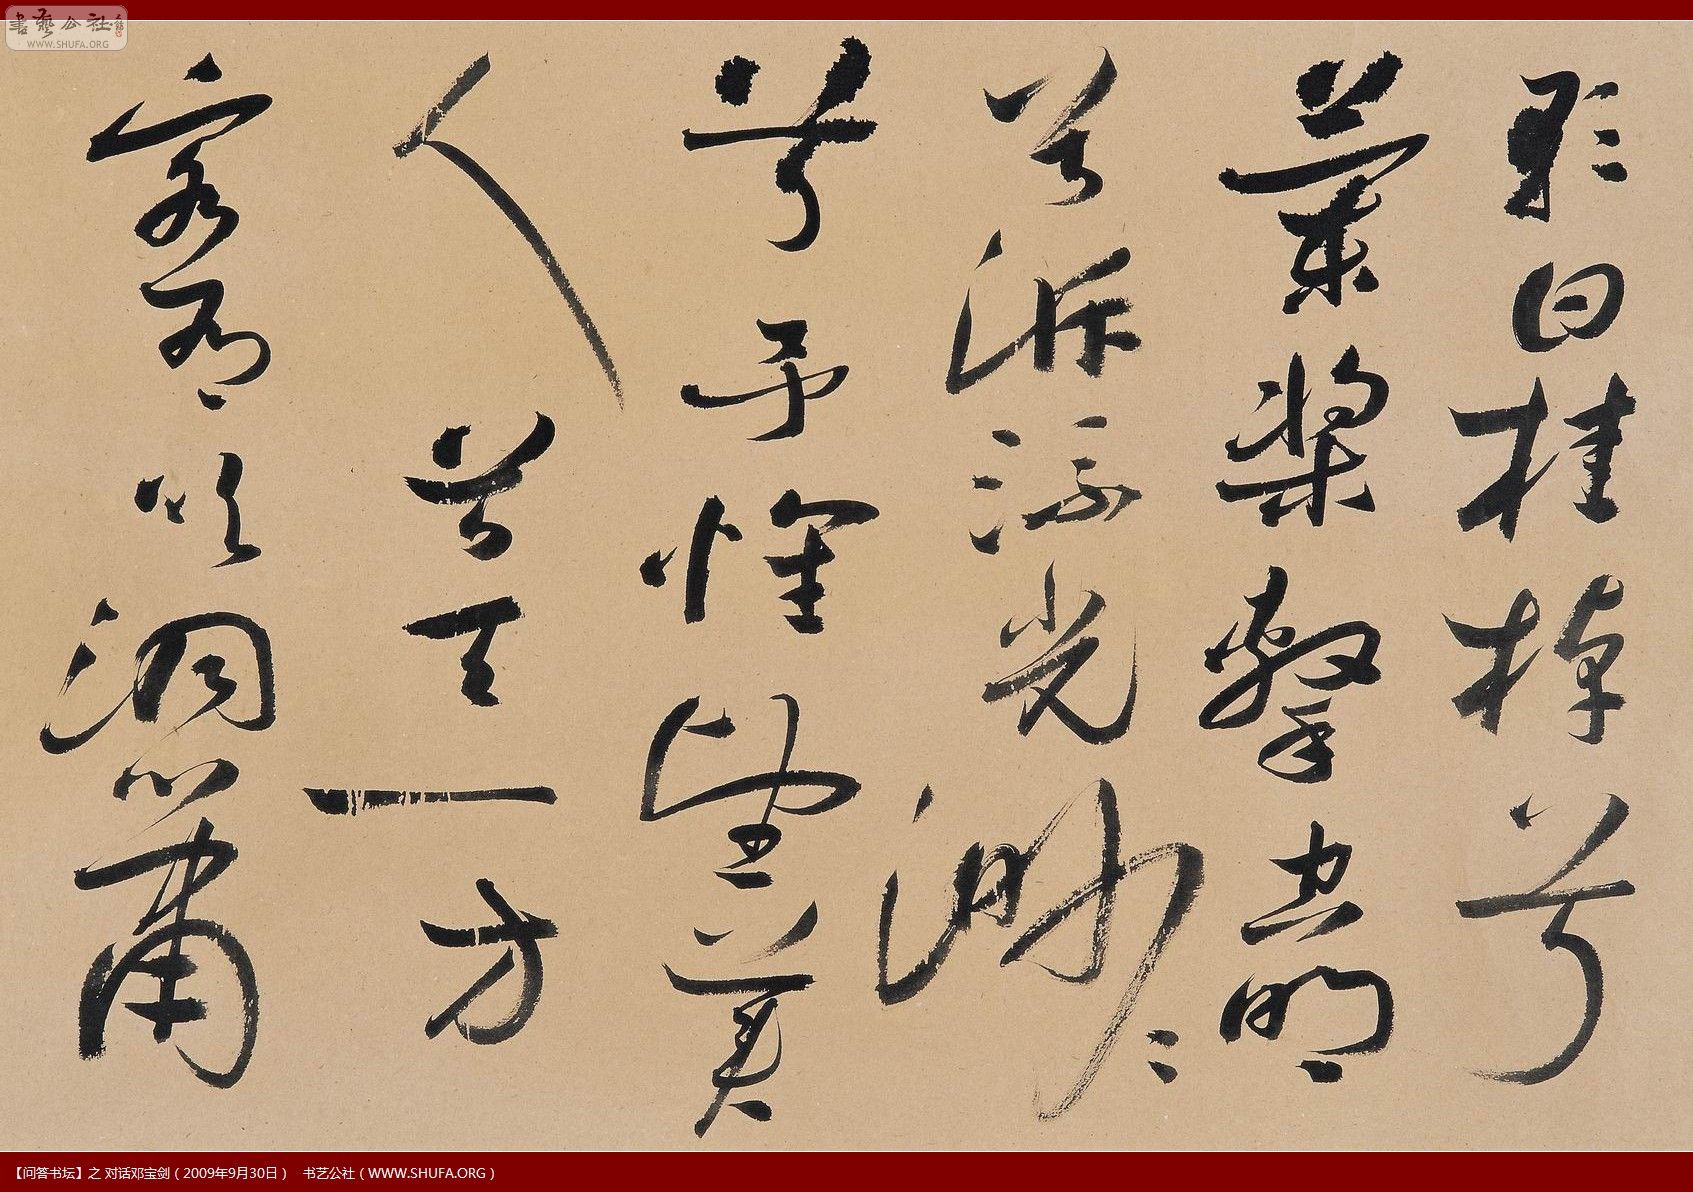 書藝公社
WWW.SHUFA.ORG
歌曰桂棹兮
蘭槳擊空明
兮泝流光渺〻
兮予懷望美
人兮天一方
客有吹洞簫
【问答书坛】之 对话邓宝剑（2009年9月30日） 书艺公社（WWW.SHUFA.ORG）